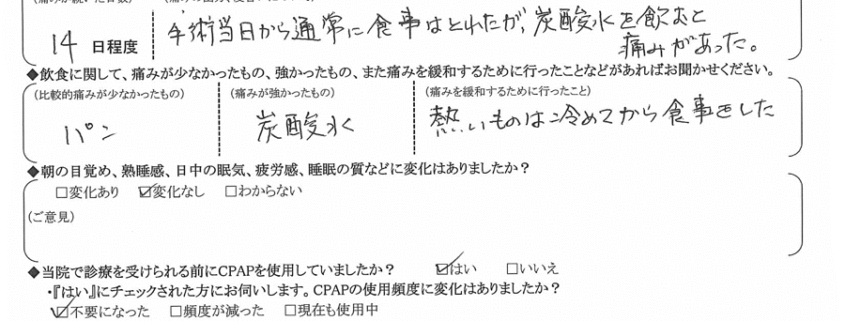 14 日程度
手術当日から通常に食事はとれたが、炭酸水を飲むと
痛みがあった。
◆飲食に関して、痛みが少なかったもの、強かったもの、また痛みを緩和するために行ったことなどがあればお聞かせください。
(比較的痛みが少なかったもの) (痛みが強かったもの) (痛みを緩和するために行ったこと)
パン 炭酸水 熱いものは冷めてから食事をした
◆朝の目覚め、熟睡感、日中の眠気、疲労感、睡眠の質などに変化はありましたか?
□変化あり ☑変化なし □わからない
(ご意見)
◆当院で診療を受けられる前にCPAPを使用していましたか? ☑はい □いいえ
・『はい』にチェックされた方にお伺いします。CPAPの使用頻度に変化はありましたか?
☑不要になった □頻度が減った □現在も使用中